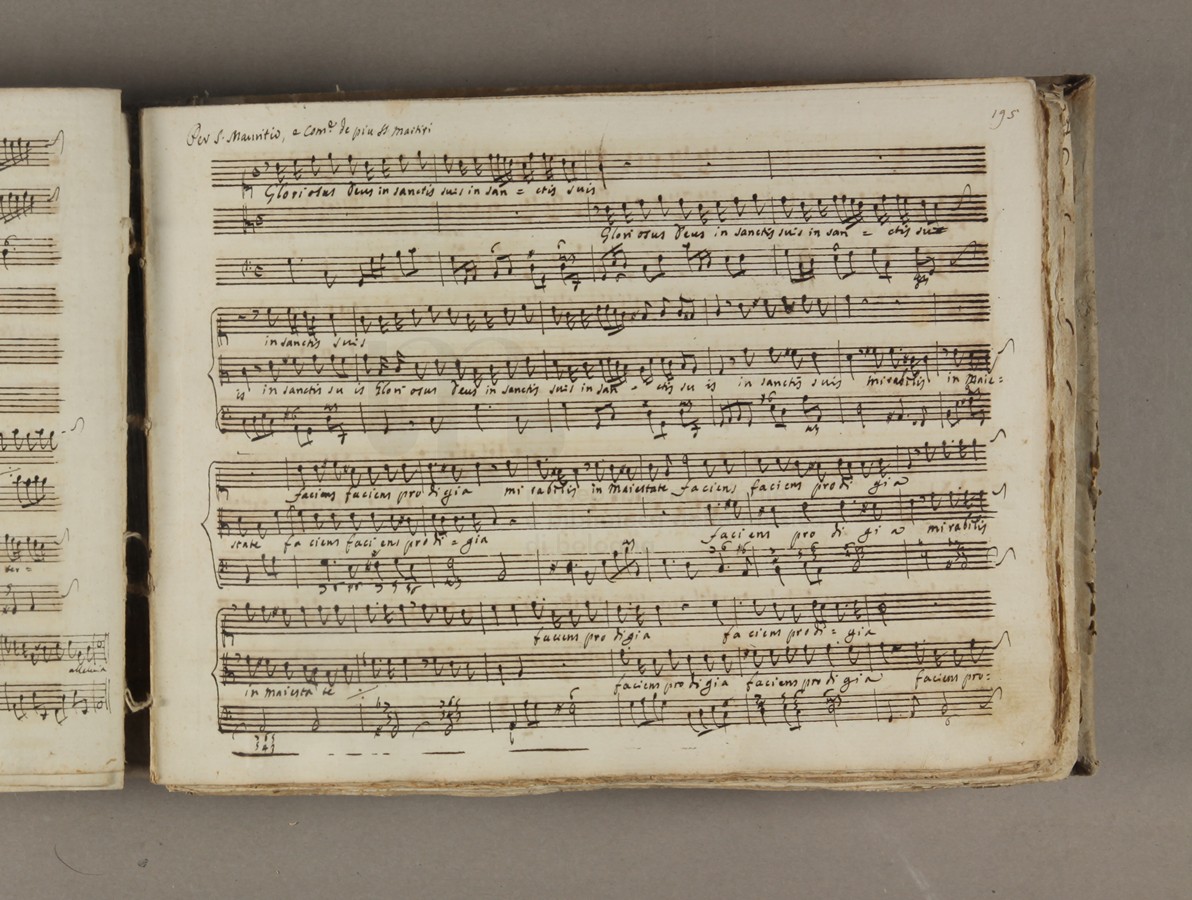 195
Per S. Mauritio, e Com.e de piu SS. martiri
Gloriosus Deus in sanctis suis in san = ctis suis
Gloriosus Deus in sanctis suis in san = ctis su=
in sanctis suis
is in sanctis su is Gloriosus Deus in sanctis suis in san - ctis su is in sanctis suis mirabilis in Maie=
faciens faciens pro digia mi rabilis in Maiestate faciens faciens prodi gia
state fa ciens faciens prodi = gia faciens pro di gi a mirabilis
faciens pro digia fa ciens prodi = gia
in Maiesta te faciens prodigia faciens prodi gia faciens pro=
alleluia